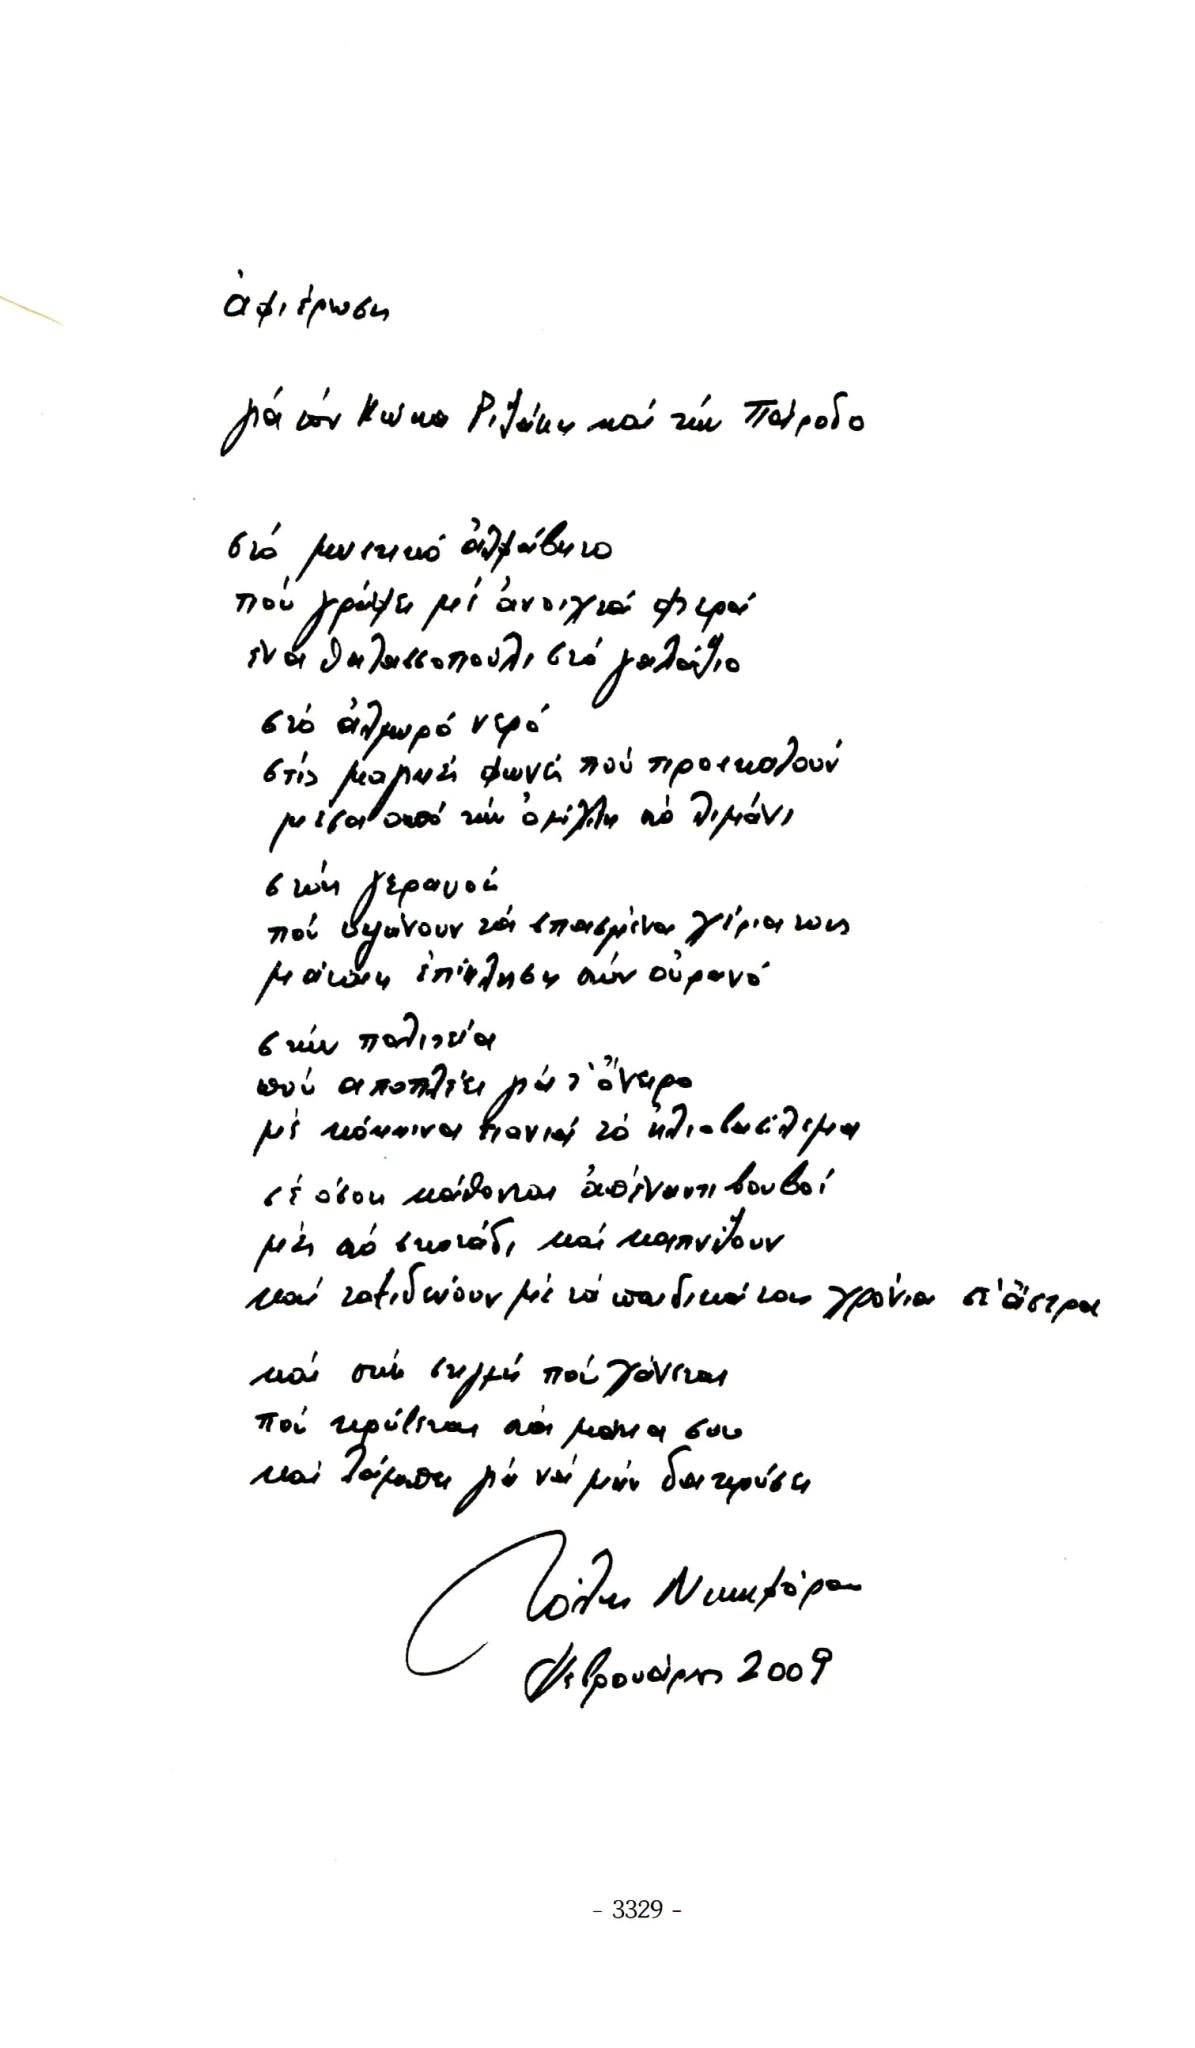 ἀφιέρωση
γιά τόν Κώστα Ριζάκη καί τήν Πάροδο
στό μυστικό ἀλφάβητο
πού γράφει μέ ἀνοιχτά φτερά
ἕνα θαλασσοπούλι στό γαλάζιο
στό ἁλμυρό νερό
στίς μαγικές φωνές πού προσκαλοῦν
μέσα ἀπό τήν ὁμίχλη στό λιμάνι
στούς γερανούς
πού ὑψώνουν τά σπασμένα χέρια τους
μάταιη ἐπίκληση στόν οὐρανό
στήν πολιτεία
πού ἀποπλέει γιά τ' ὄνειρο
μέ κόκκινα πανιά τό ἡλιοβασίλεμα
σέ ὅσους κάθονται ἀπέναντι βουβοί
μές στό σκοτάδι καί καπνίζουν
καί ταξιδεύουν μέ τά παιδικά τους χρόνια στ' ἄστρα
καί στή στιγμή πού χάνεται
πού κρύβεται στά μάτια σου
καί λάμπει γιά νά μήν δακρύσει
Τόλης Νικηφόρου
Φεβρουάρης 2009
- 3329 -